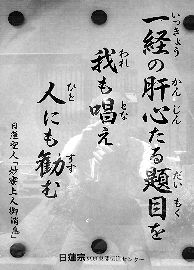 一経の肝心たる題目を
いっきょう かんじん だいもく
我も唱え
われ とな
人にも勧む
ひと すす
日蓮聖人「妙密上人御消息」
日蓮宗